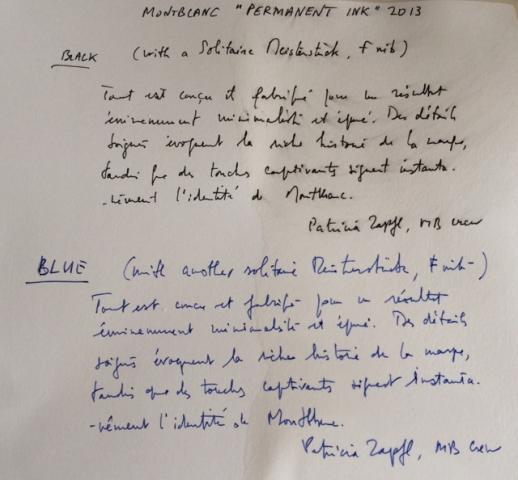 MONTBLANC "PERMANENT INK" 2013
BLACK (with a Solitaire Meisterstück, F nib)
Tout est conçu et fabriqué pour un résultat
éminemment minimaliste et épuré. Des détails
soignés évoquent la riche histoire de la marque,
tandis que des touches captivants signent instanta-
-nément l'identité de Montblanc.
Patricia Zapfl, MB crew
BLUE (with another solitaire Meisterstück, F nib-)
Tout est conçu et fabriqué pour un résultat
éminemment minimaliste et épuré. Des détails
soignés évoquent la riche histoire de la marque,
tandis que des touches captivants signent instanta.
-nément l'identité de Montblanc.
Patricia Zapfl, MB crew